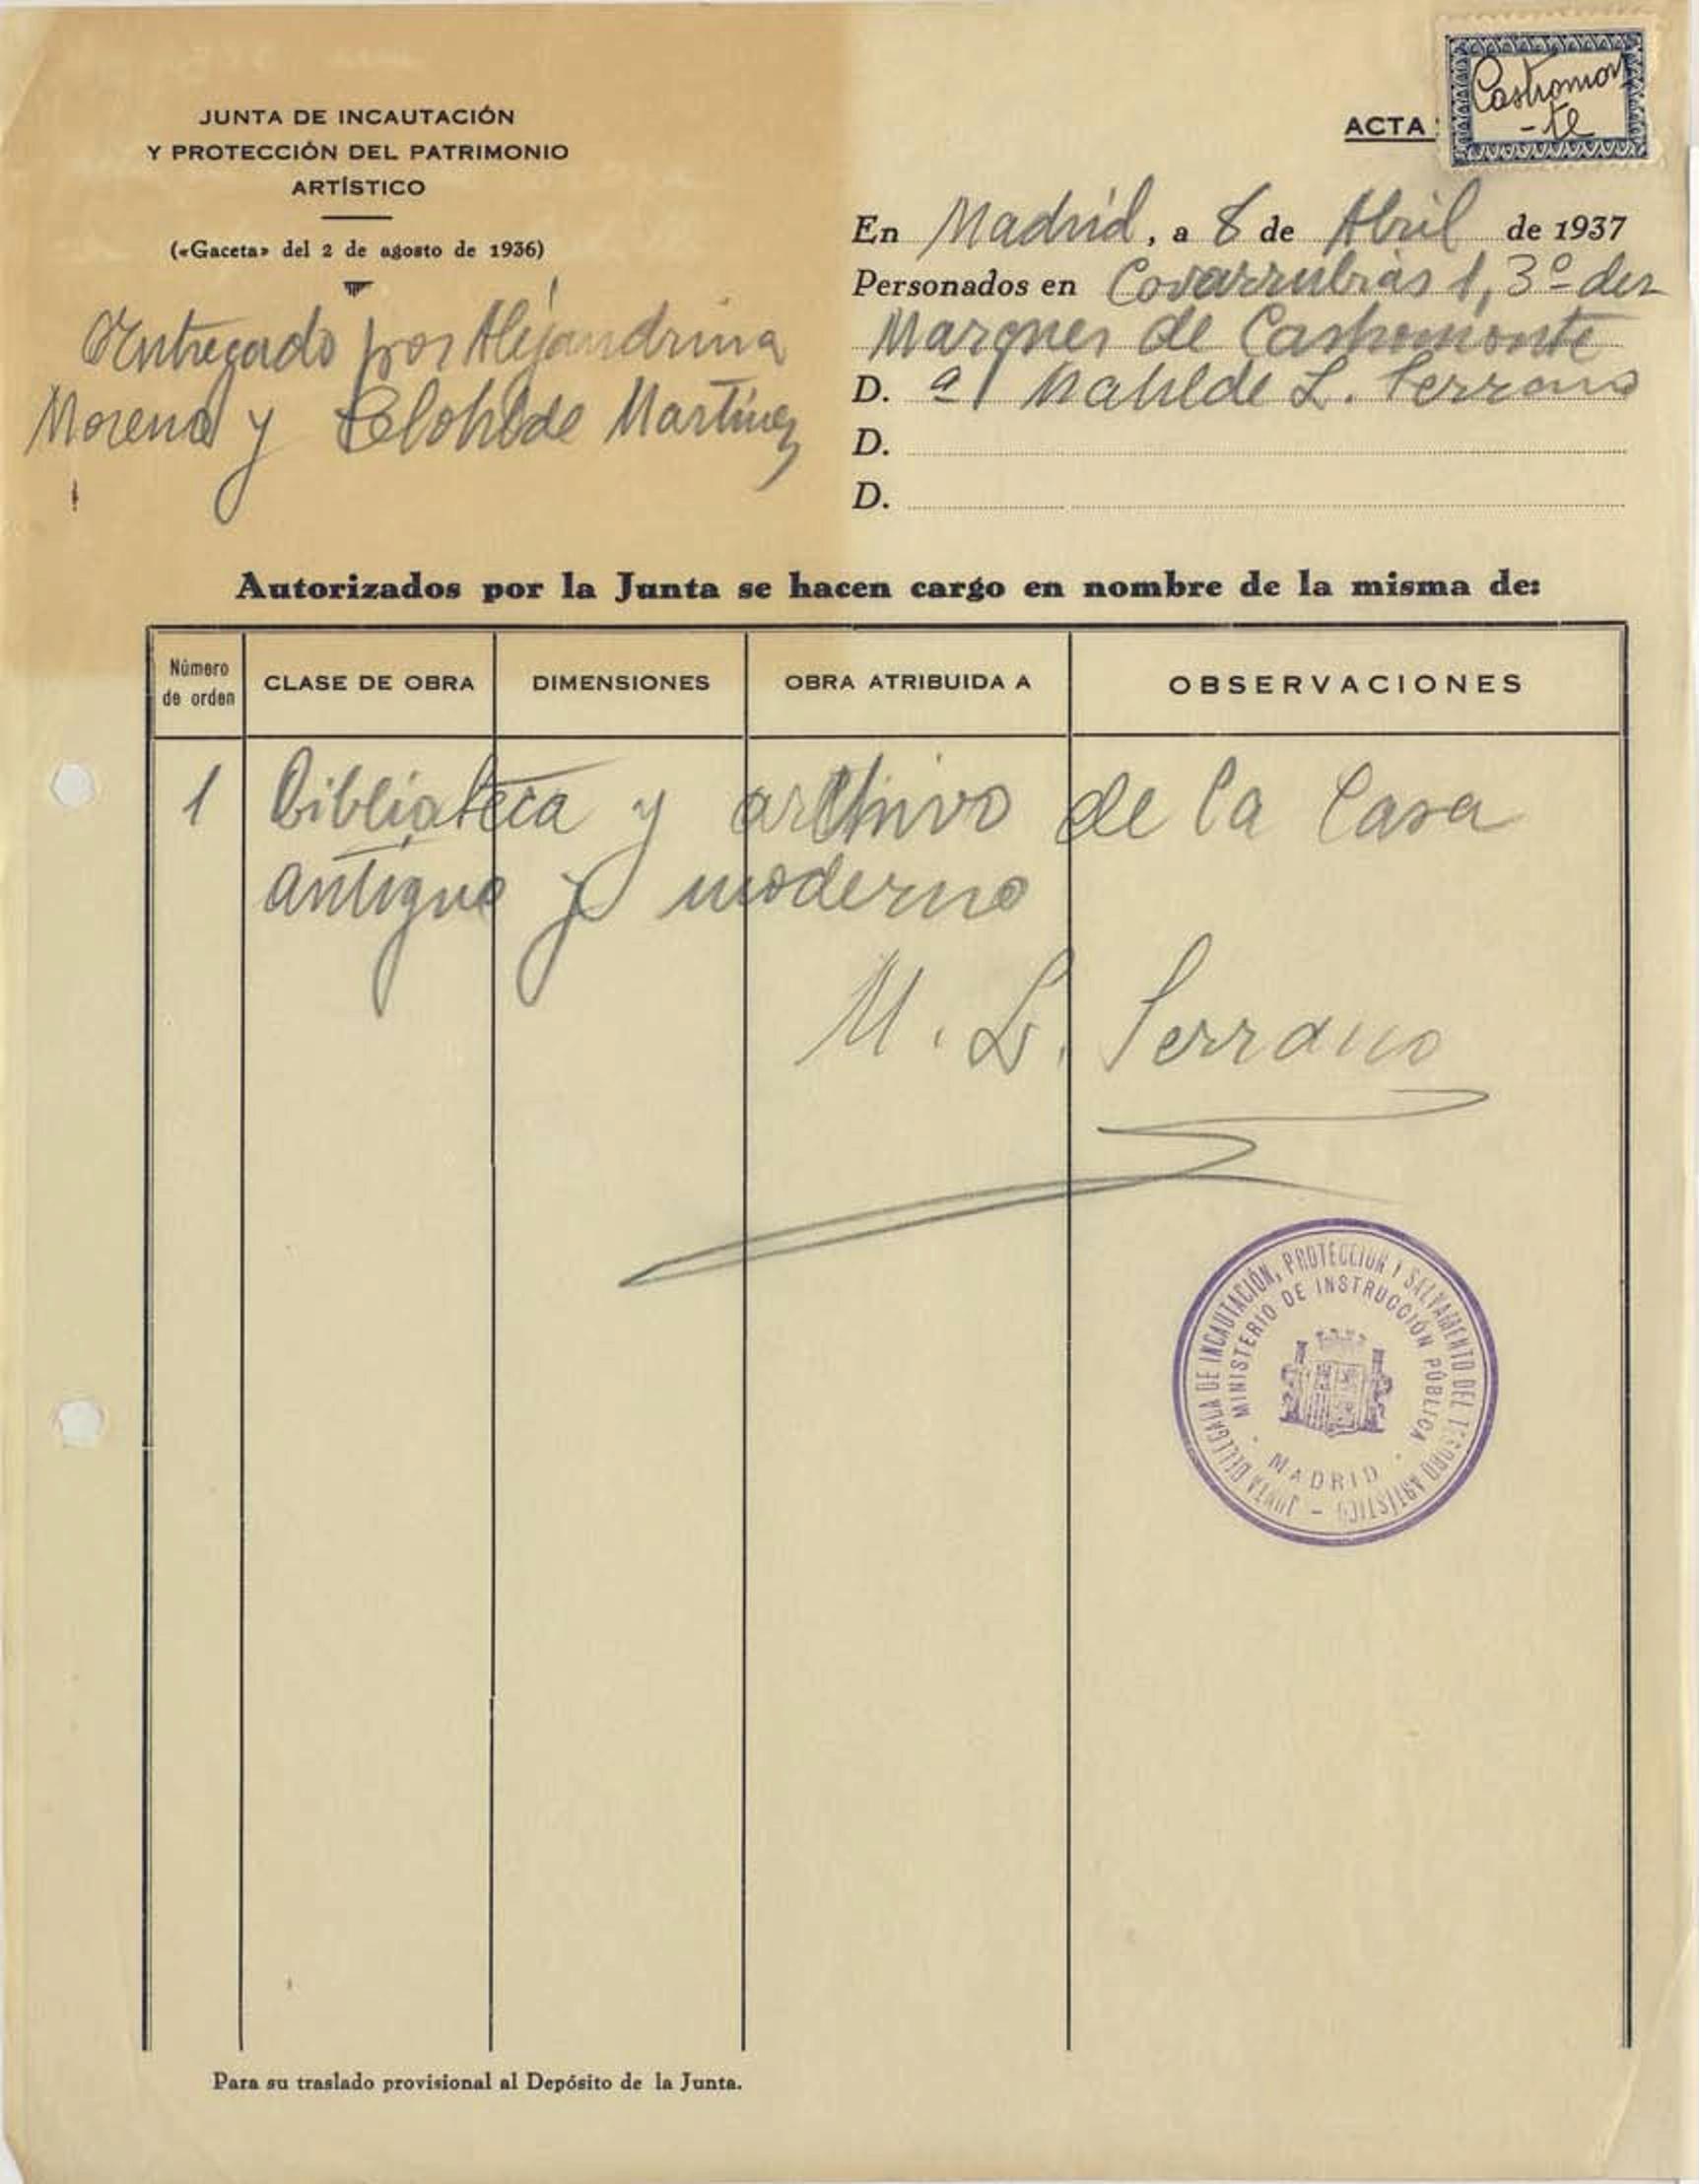 JUNTA DE INCAUTACIÓN
Y PROTECCIÓN DEL PATRIMONIO
ARTÍSTICO
(«Gaceta» del 2 de agosto de 1936)
Entregado por Alejandrina
Moreno y Clotilde Martínez
ACTA
Castromon
-te
En Madrid, a 8 de Abril de 1937
Personados en Covarrubias 1, 3º der
Marques de Castromonte
D.ª Matilde L. Serrano
D.
D.
Autorizados por la Junta se hacen cargo en nombre de la misma de:
Número de orden CLASE DE OBRA DIMENSIONES OBRA ATRIBUIDA A OBSERVACIONES
1 Biblioteca y archivo de la Casa
antiguo y moderno
M. L. Serrano
JUNTA DELEGADA DE INCAUTACIÓN, PROTECCIÓN Y SALVAMENTO DEL TESORO ARTÍSTICO -
MINISTERIO DE INSTRUCCIÓN PÚBLICA
· MADRID ·
Para su traslado provisional al Depósito de la Junta.